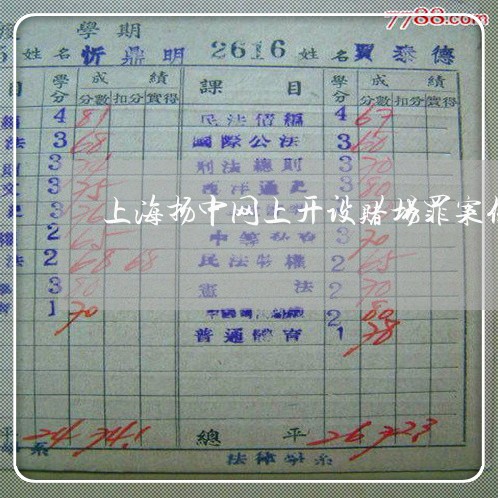 7788.com
學期
姓名 忻鼎明 2616 姓名 賈泰德
目 學分 成績 課目 學分 成績
分數 扣分 實得 分數 扣分 實得
4 81 民法債編 4 67
法 3 68 國際公法 3 60
3 刑法總則 3 70
3 75 西洋通史 3 80
上海扬中网上开设赌场罪案件
2 65 3 70
法 2 68 68 民法物權 2 65
3 80 憲法 2 70
1 70 2 80
普通體育 1 78
平 24 74.1 總平 26 72.3
系 法律學系